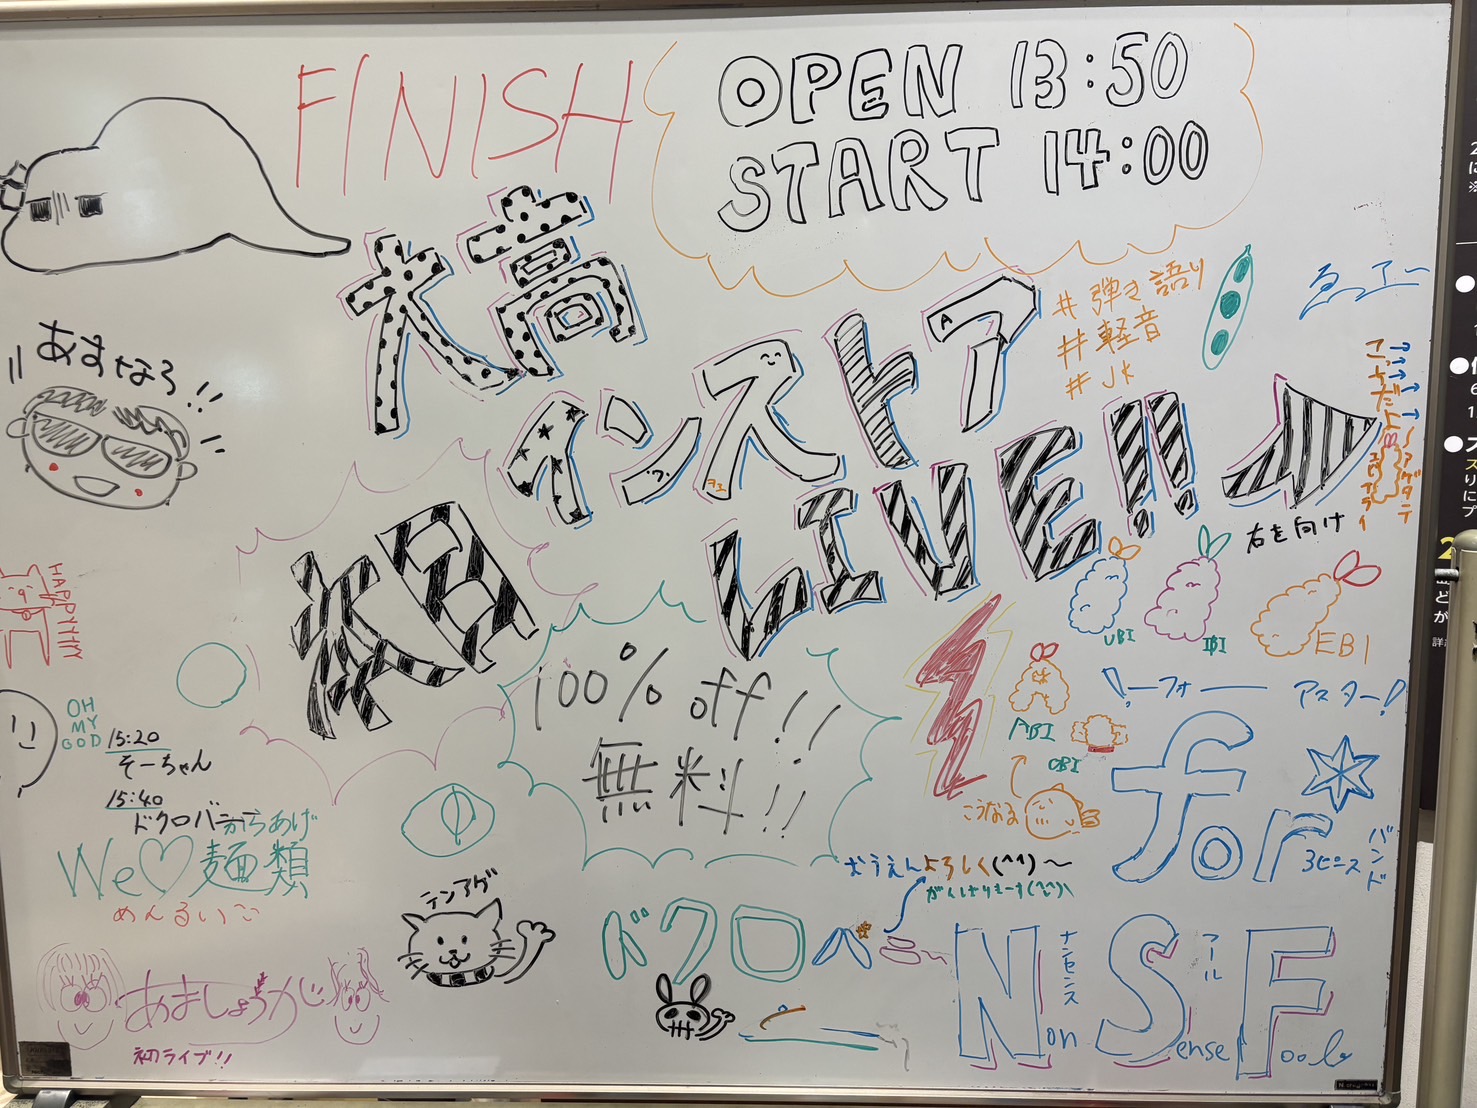 FINISH
OPEN 13:50
START 14:00
大高
インストア
LIVE!!
#弾き語り
#軽音
#JK
こっちだよ
右を向け
あすなろ!!
HAPPYYYY
OH
MY
GOD
15:20
そーちゃん
15:40
ドクロバー
からあげ
We♡麺類
めんるい
100% off!!
無料!!
UBI
IBI
EBI
ABI
OBI
こうなる
フォー
アスター!
for
3ピース
バンド
おうえんよろしく(^^)~
がんばりまーす(^^)
テンアゲ
ドクロバー
あましょうかじ
初ライブ!!
Non
ナンセンス
Sense
フール
Fools